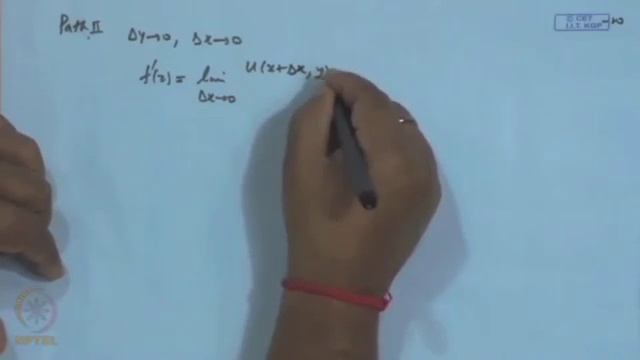 Path II Δy→0, Δx→0
f'(z) = lim U(x+Δx, y)
Δx→0
© CET
I.I.T. KGP
NPTEL